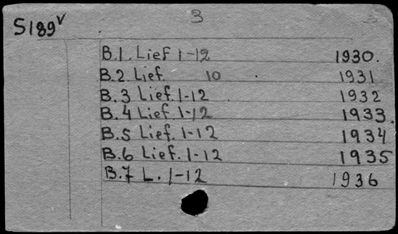 3
S189v
B.1. Lief 1-12 1930.
B.2. Lief. 10 1931
B.3 Lief. 1-12 1932
B.4 Lief. 1-12 1933.
B.5 Lief. 1-12 1934
B.6 Lief. 1-12 1935
B.7 L. 1-12 1936